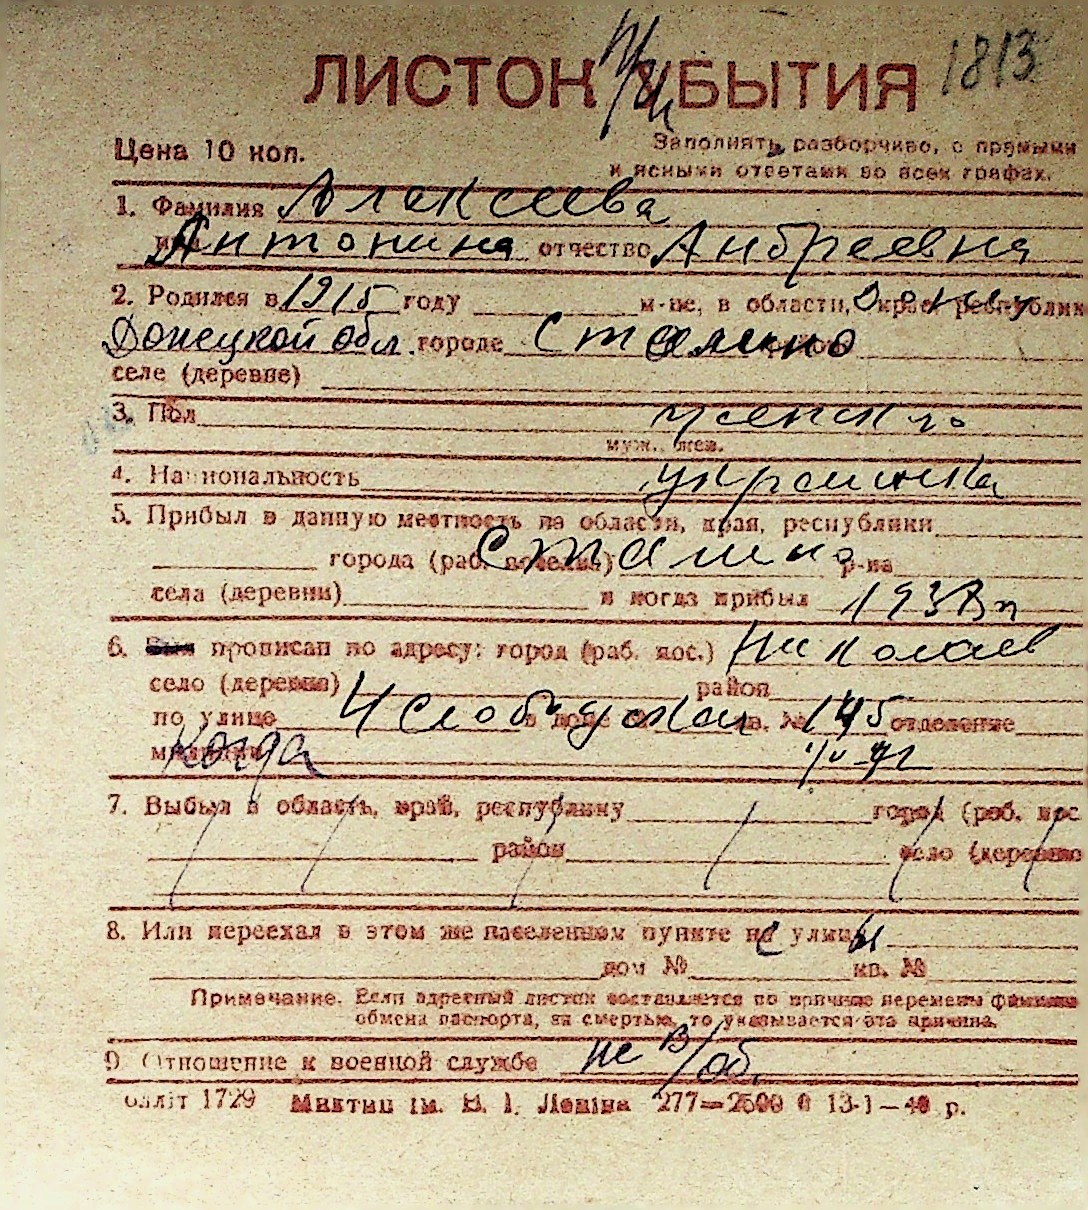 ЛИСТОК УБЫТИЯ 1813
Цена 10 коп.
Заполнять разборчиво, с прямыми
и ясными ответами во всех графах.
1. Фамилия Алексеева
имя Антонина отчество Андреевна
2. Родился в 1915 году м-це, в области, крае, республик
Донецкой обл. городе Сталино
селе (деревне)
3. Пол женск
муж., жен.
4. Национальность украинка
5. Прибыл в данную местность из области, края, республики
города (раб. поселка) Сталино р-на
села (деревни) и когда прибыл
6. Был прописан по адресу: город (раб. пос.) Николаев
село (деревня) район
по улице Слободская в доме кв. № 145 отделение
милиции Когда
7. Выбыл в область, край, республику город (раб. пос
район село (деревню
8. Или переехал в этом же населенном пункте на улицу
дом № кв. №
Примечание. Если адресный листок составляется по причине перемены фамилии
обмена паспорта, за смертью, то указывается эта причина.
9. Отношение к военной службе не в/об.
1729 ім. В. І. Леніна 277—2500 13-1—40 р.